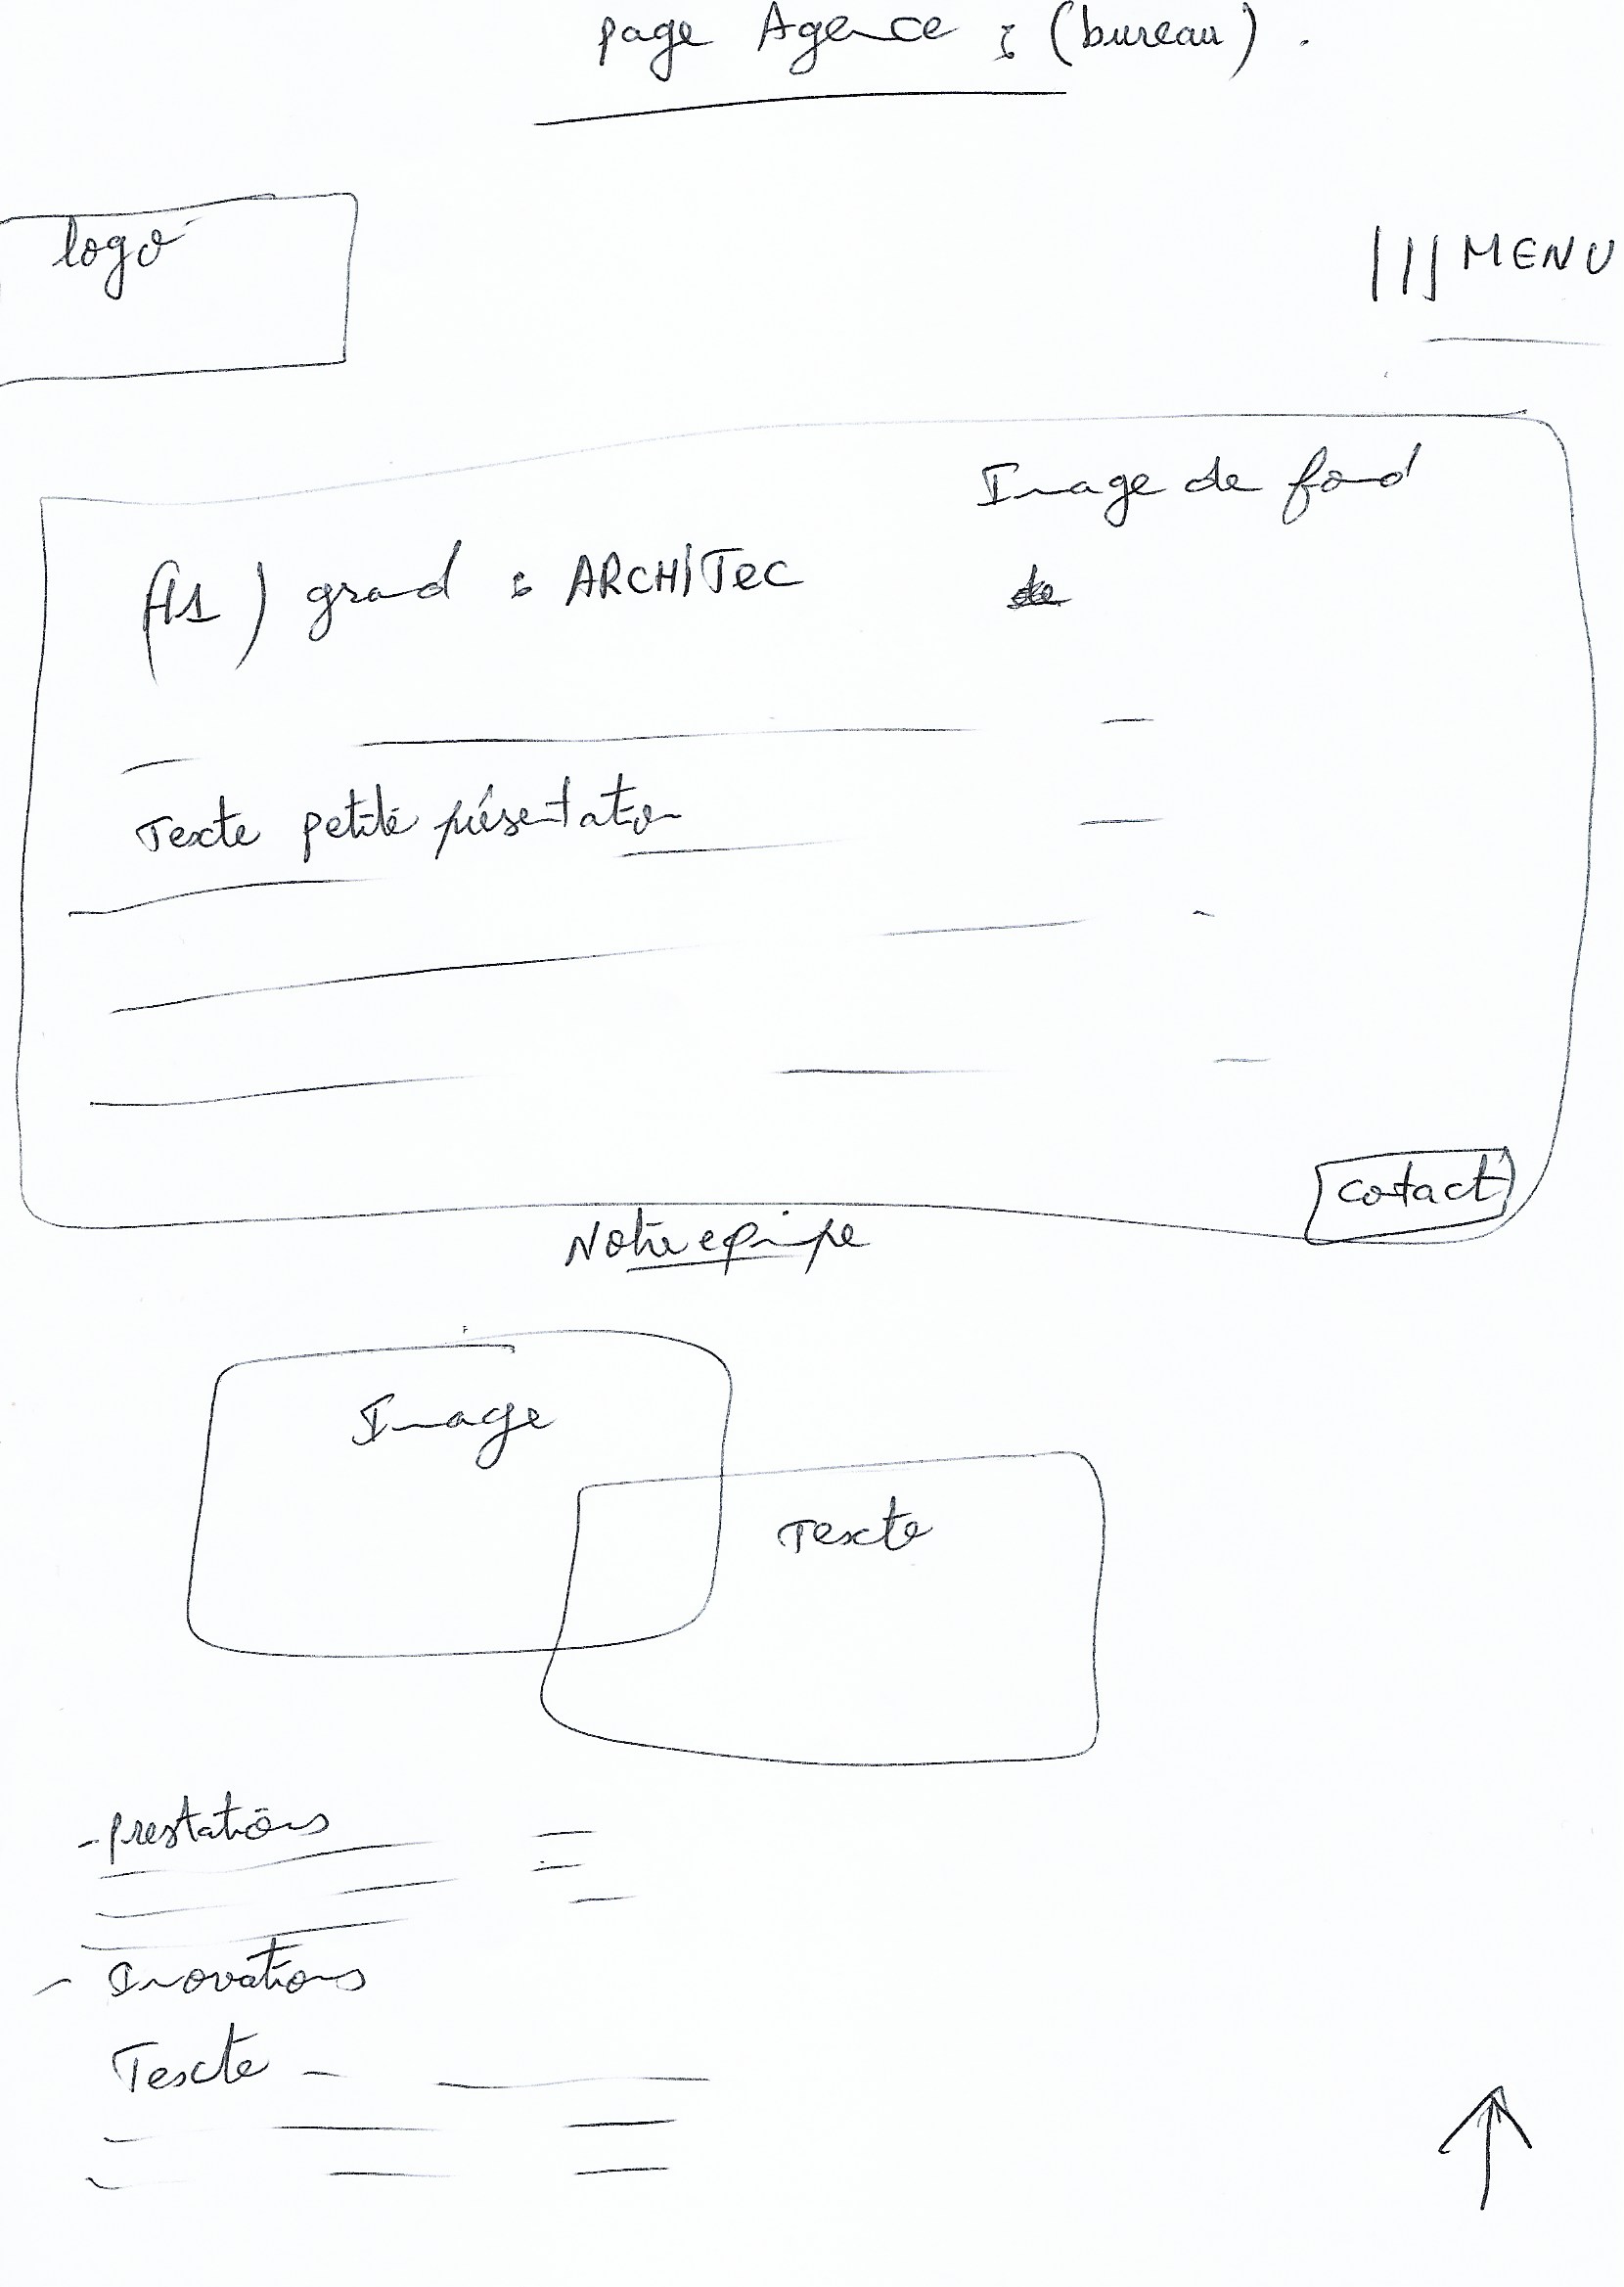 page Agence : (bureau).
logo
||| MENU
Image de fond
(H1) grand : ARCHITEC
Texte petite présentation
contact
Notre equipe
Image
Texte
- prestations
- Inovations
Texte -